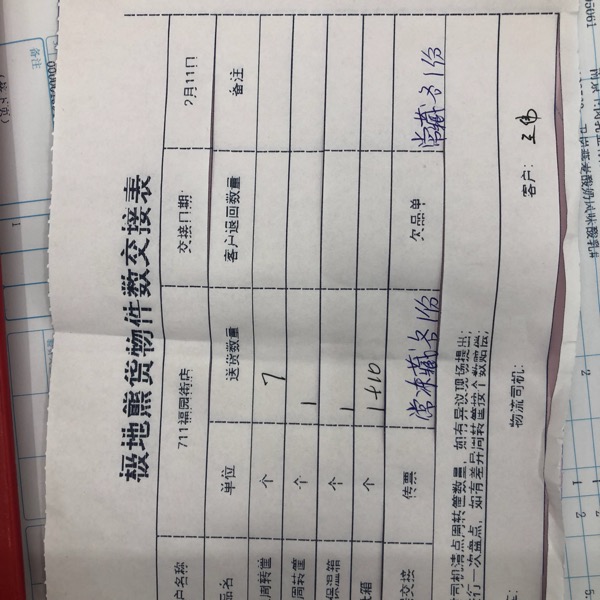 极地熊货物件数交接表
户名称 711福园街店 交接日期: 2月11日
品名 单位 送货数量 客户退回数量 备注
周转筐 个 7
周转筐 个 1
保温箱 个 1
箱 个 1+10
交接 传票 常冻藏各1份 欠品单 常藏各1份
司机清点周转筐数量, 如有异议现场提出;
行一次盘点, 如有差异周转筐按个数赔偿;
物流司机: 客户: 王伟
备注